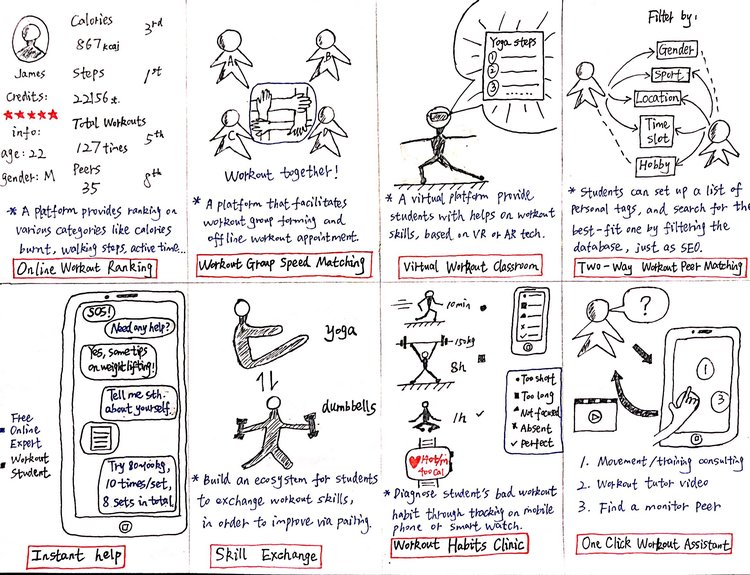 James
Credits:
★★★★★
info:
age: 22
gender: M
Calories
867 kcal
3rd
Steps
22156 st.
1st
Total Workouts
127 times
5th
Peers
35
8th
* A platform provides ranking on
various categories like calories
burnt, walking steps, active time...
Online Workout Ranking
A
B
C
D
Workout together!
* A platform that facilitates
workout group forming and
offline workout appointment.
Workout Group Speed Matching
Yoga steps
1
2
3
* A virtual platform provide
students with helps on workout
skills, based on VR or AR tech.
Virtual Workout Classroom
Filter by:
Gender
Sport
Location
Time
slot
Hobby
* Students can set up a list of
personal tags, and search for the
best-fit one by filtering the
database, just as SEO.
Two-Way Workout Peer Matching
SOS!
Need any help?
Yes, some tips
on weightlifting!
Tell me sth.
about yourself.
Try 80~100kg,
10 times/set,
8 sets in total.
Free
Online
Expert
Workout
Student
Instant help
yoga
dumbbells
* Build an ecosystem for students
to exchange workout skills,
in order to improve via pairing.
Skill Exchange
10min
150kg
8h
1h ✓
• Too short
■ Too long
▲ Not focused
× Absent
✓ Perfect
400 Cal
* Diagnose student's bad workout
habit through tracking on mobile
phone or smart watch.
Workout Habits Clinic
?
1
3
1. Movement/training consulting
2. Workout tutor video
3. Find a monitor peer
One Click Workout Assistant